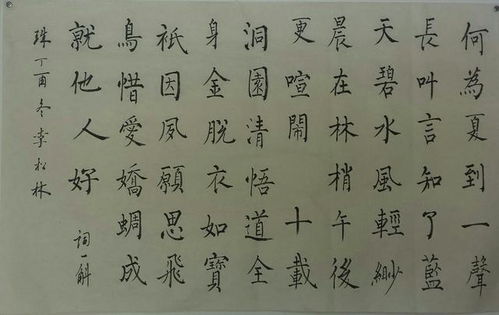 何為夏到一聲
長叫言知了藍
天碧水風輕緲
晨在林梢午後
更喧鬧 十載
洞園清悟道全
身金脫衣如寶
祇因夙願思飛
鳥惜愛嬌蜩成
就他人好 詞一斛
珠丁酉冬李松林